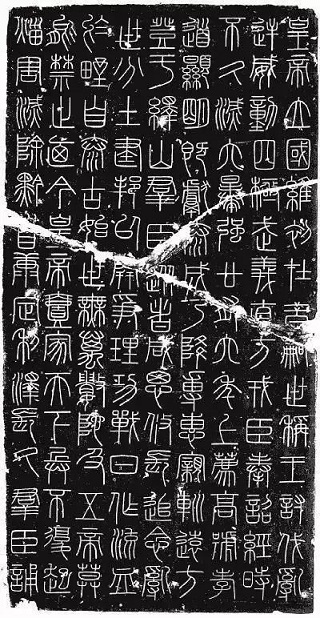 皇帝立國維初在昔嗣世稱王討伐亂
逆威動四極武義直方戎臣奉詔經時
不久滅六暴強廿有六年上薦高號孝
道顯明既獻泰成乃降專惠親巡遠方
登于繹山羣臣從者咸思攸長追念亂
世分土建邦以開爭理功戰日作流血
於野自泰古始世無萬數陀及五帝莫
能禁止廼今皇帝壹家天下兵不復起
灾害滅除黔首康定利澤長久羣臣誦